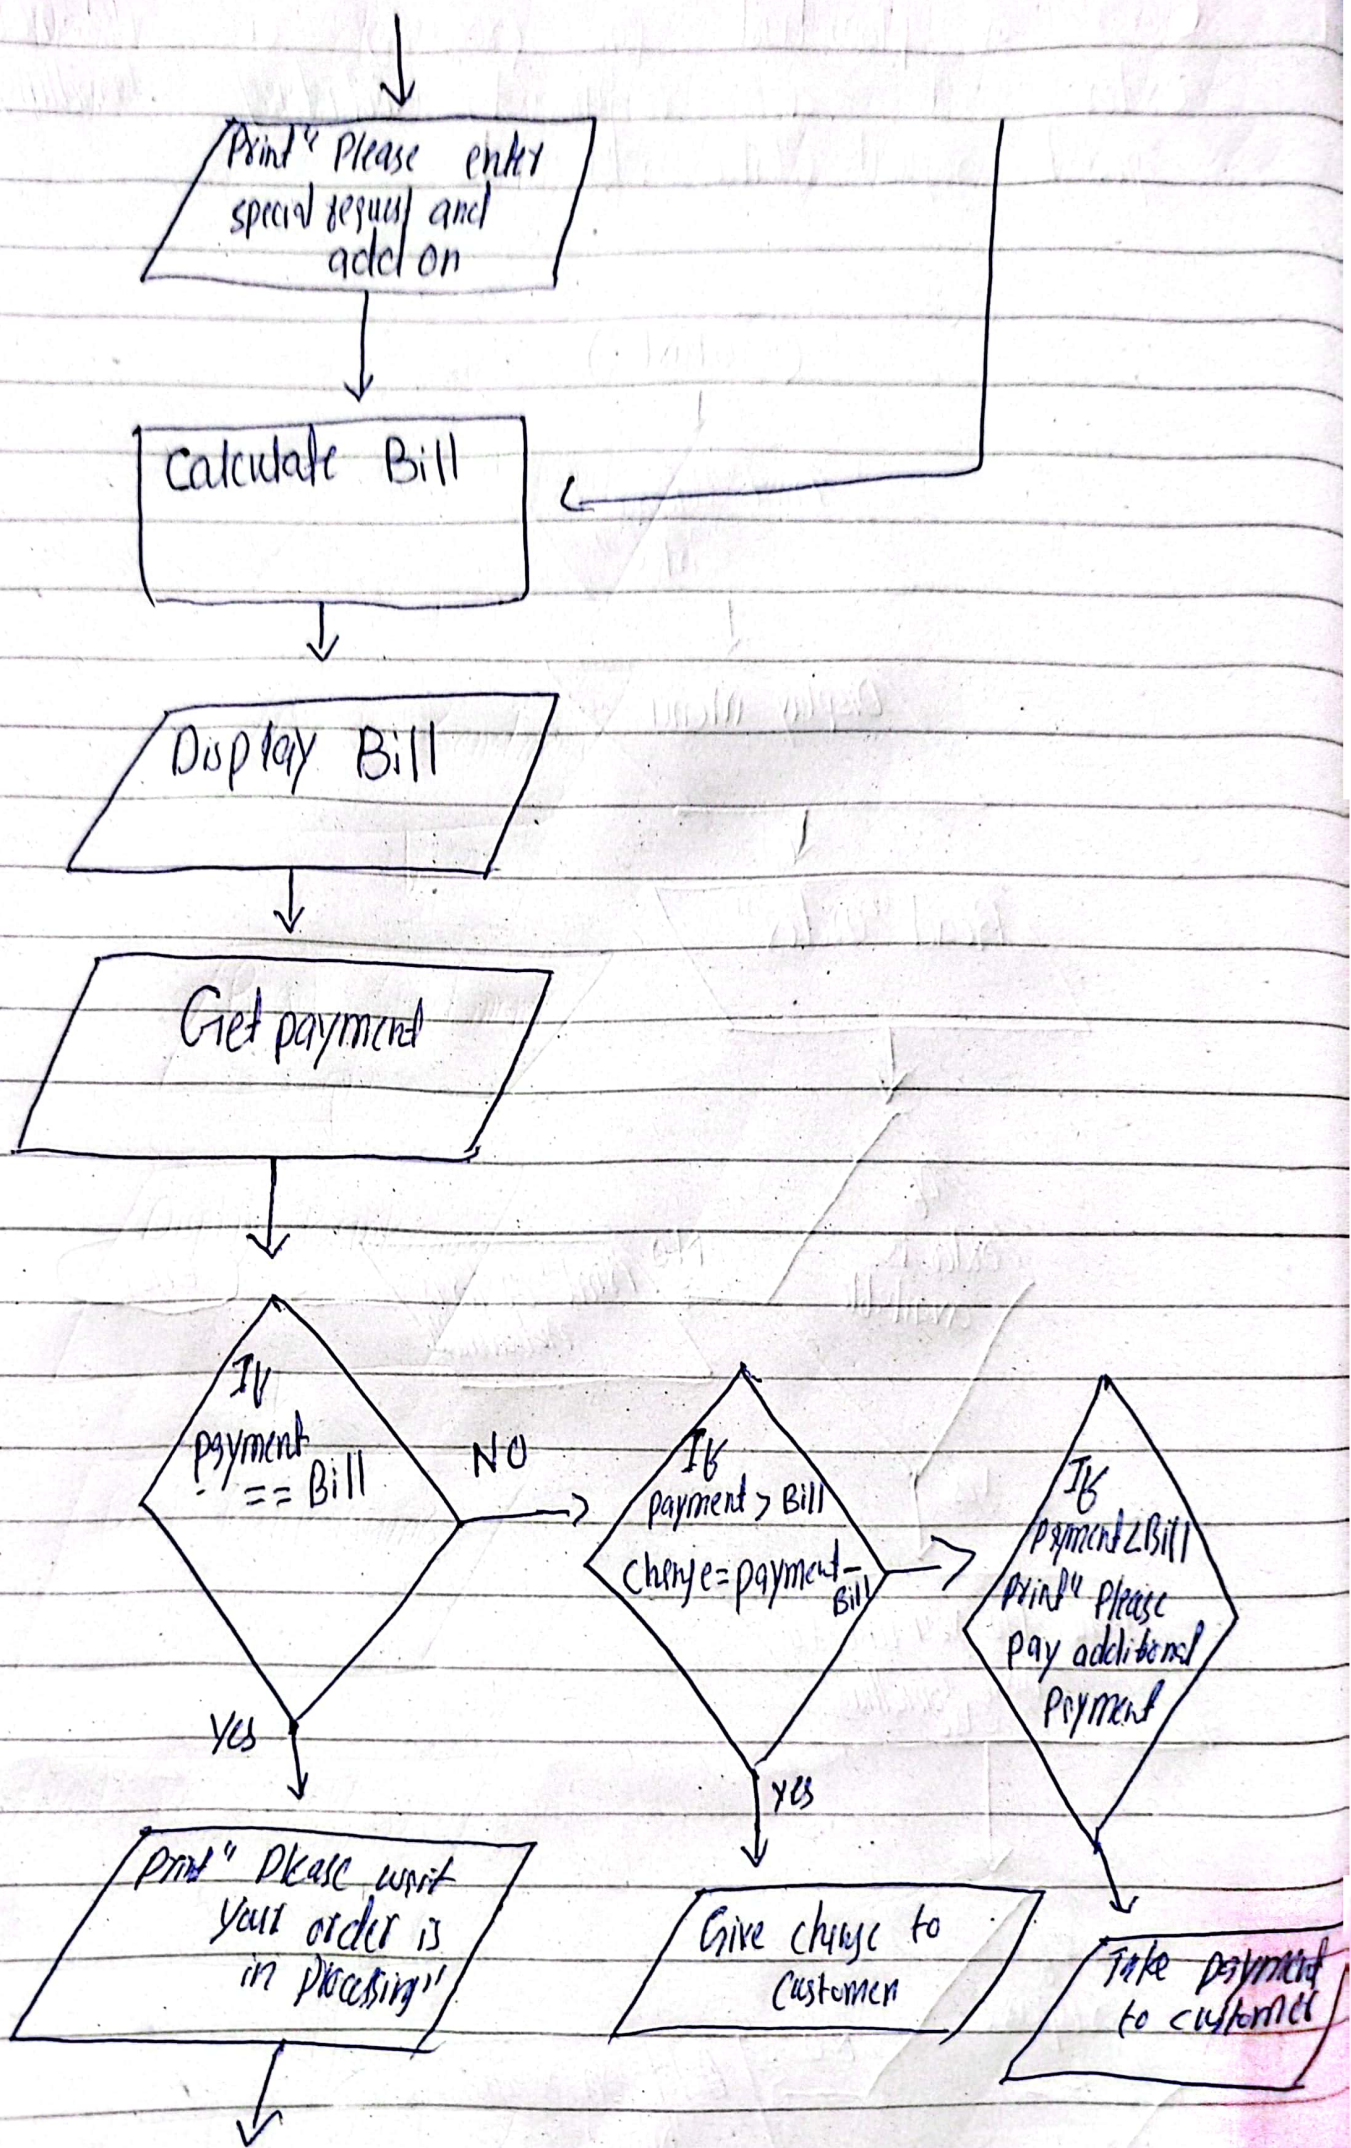 Print" Please enter
special request and
add on
Calculate Bill
Display Bill
Get payment
If
payment
== Bill
NO
Yes
If
payment > Bill
change = payment -
Bill
yes
If
payment < Bill
print" Please
pay additional
payment
print" Please wait
your order is
in processing"
Give change to
Customer
Take payment
to customer